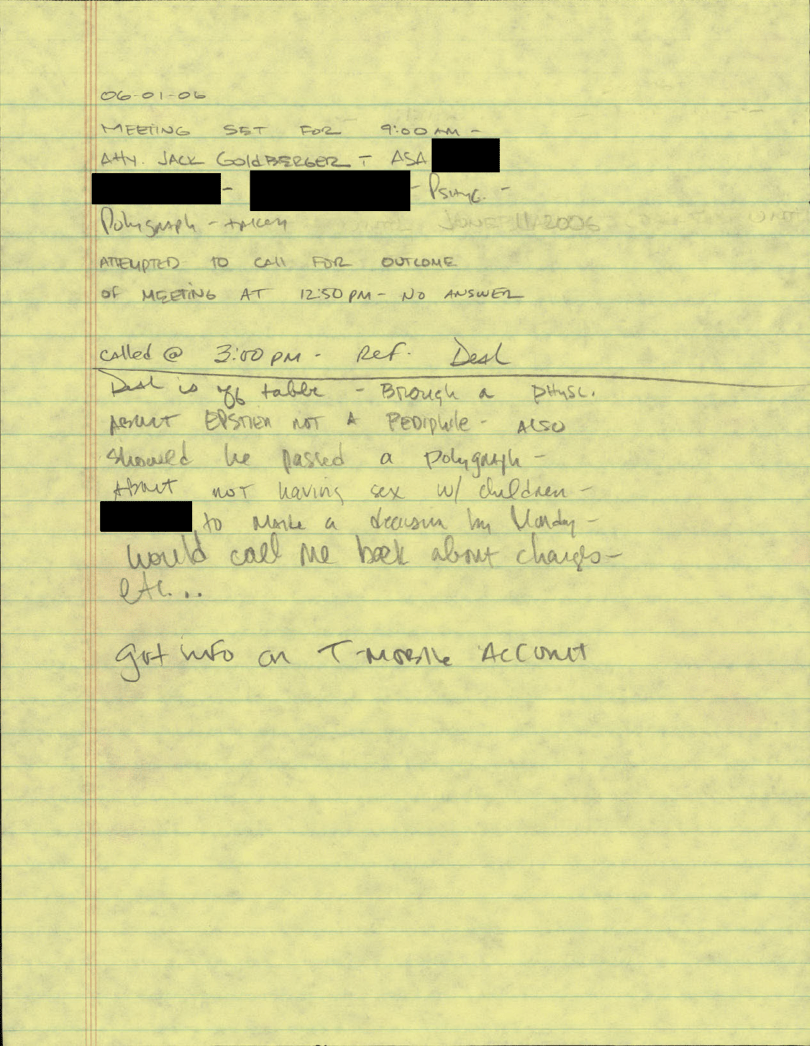 06-01-06
MEETING SET FOR 9:00 AM -
Atty. JACK GOLDBERGER + ASA
- - Psyc. -
Polygraph - taken
JUNE 1, 2006
ATTEMPTED TO CALL FOR OUTCOME
OF MEETING AT 12:50 PM - NO ANSWER
called @ 3:00 PM - Ref. Deal
Deal is off table - Brough a physc.
ABOUT EPSTIEN NOT A PEDIPHILE - ALSO
showed he passed a polygraph -
About not having sex w/ children -
to make a decision by Monday -
would call me back about charges -
etc...
got info on T-MOBILE ACCOUNT